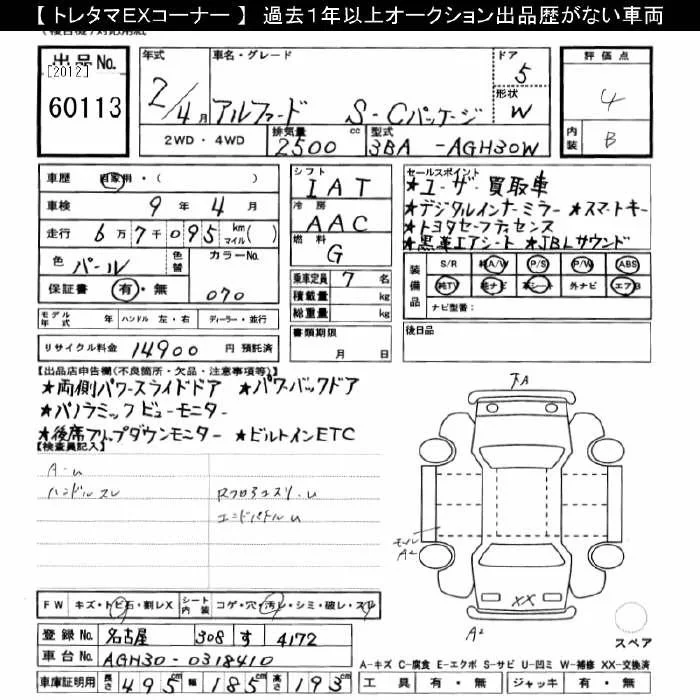 【 トレタマEXコーナー 】 過去１年以上オークション出品歴がない車両
出品No.
[2012]
60113
年式
2/4月
車名・グレード
アルファード S-Cパッケージ
ドア
5
形状
W
評価点
4
内装
B
2WD・4WD
排気量
2500
cc
型式
3BA -AGH30W
車歴 自家用・( )
車検 9年 4月
走行 6万7千095 km マイル( )
色 パール
色替
カラーNo.
070
保証書 有・無
モデル年式 年 ハンドル 左・右 ディーラー・並行
リサイクル料金 14900 円 預託済
シフト
IAT
冷房
AAC
燃料
G
乗車定員 7 名
積載量 kg
総重量 kg
書類期限
月 日
セールスポイント
★ユーザー買取車
★デジタルインナーミラー ★スマートキー
★トヨタセーフティセンス
★黒革エアシート ★JBLサウンド
装備品
S/R 純A/W P/S P/W ABS
純TV 純ナビ 革シート 外ナビ エアB
ナビ型番：
後日品
【出品店申告欄(不良箇所・欠品・注意事項等)】
★両側パワースライドドア ★パワーバックドア
★パノラミックビューモニター
★後席フリップダウンモニター ★ビルトインETC
【検査員記入】
A-U
ハンドルスレ
エンドパネルU
下A
モール
A2
XX
A2
スペア
FW キズ・トビ石・割レX
シート内装 コゲ・穴・汚レ・シミ・破レ・スレ
登録No. 名古屋 308 す 4172
車台No. AGH30-0318410
車庫証明用 長さ 495 幅 185 高さ 193 cm
A-キズ C-腐食 E-エクボ S-サビ U-凹ミ W-補修 XX-交換済
工具 有・無 ジャッキ 有・無